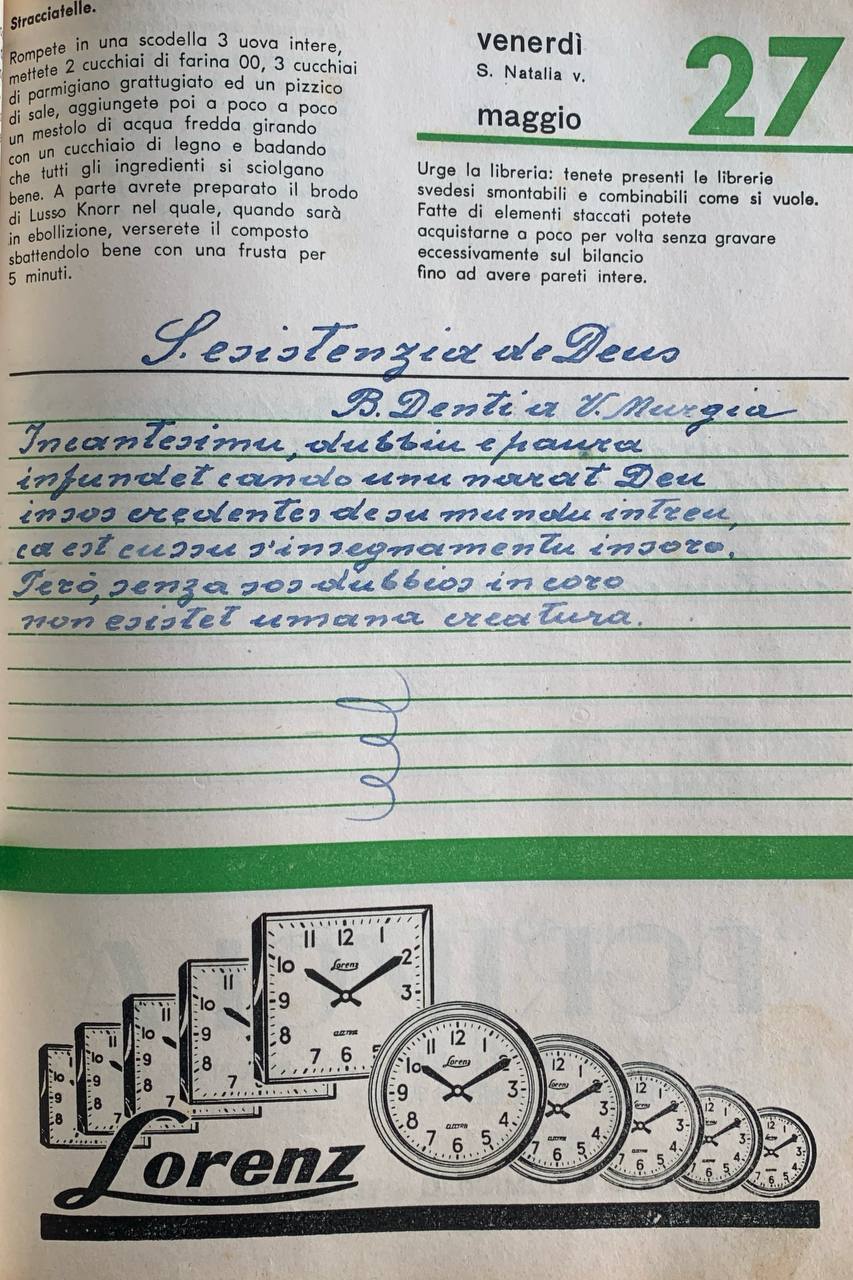 Stracciatelle.
Rompete in una scodella 3 uova intere,
mettete 2 cucchiai di farina 00, 3 cucchiai
di parmigiano grattugiato ed un pizzico
di sale, aggiungete poi a poco a poco
un mestolo di acqua fredda girando
con un cucchiaio di legno e badando
che tutti gli ingredienti si sciolgano
bene. A parte avrete preparato il brodo
di Lusso Knorr nel quale, quando sarà
in ebollizione, verserete il composto
sbattendolo bene con una frusta per
5 minuti.
venerdì
S. Natalia v.
maggio
27
Urge la libreria: tenete presenti le librerie
svedesi smontabili e combinabili come si vuole.
Fatte di elementi staccati potete
acquistarne a poco per volta senza gravare
eccessivamente sul bilancio
fino ad avere pareti intere.
S. esistenzia de Deus
B. Denti a V. Murgia
Incantesimu, dubbiu e paura
infundet cando unu narat Deu
insos credentes de su mundu intreu,
ca est cussu s'insegnamentu insoro.
Però, senza sos dubbios in coro
non esistet umana creatura.
Lorenz